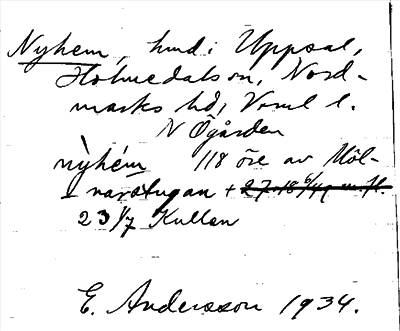 Nyhem, hmd i Uppsal,
Holmedals sn, Nord-
marks hd, Verml l.
N Ögården
nỳhém 118 öre av Möl-
narstugan +
23 1/7 Kullen
E. Andersson 1934.